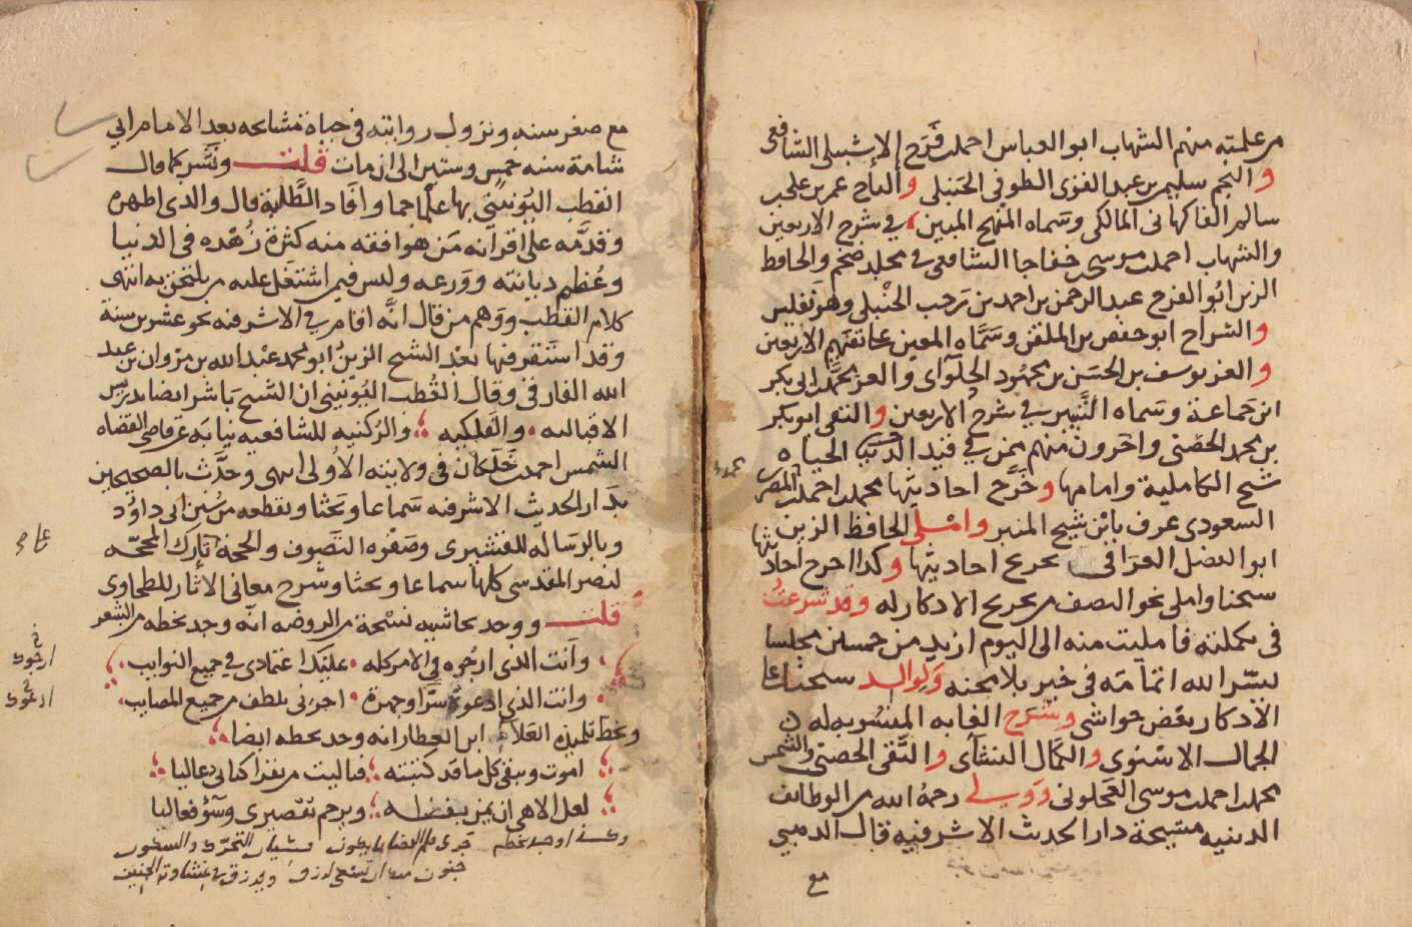 من علمته منهم الشهاب ابو العباس احمد بن فَرَح الاشبيلى الشافعى
والنجم سليمن بن عبد القوى الطوفى الحنبلى والتاج عمر بن على بن
سالم الفاكهانى المالكى وسماه المنهج المبين في شرح الاربعين
والشهاب احمد بن موسى بن خفاجا الشافعى في مجلد ضخم والحافظ
الزين ابو الفرج عبد الرحمن بن احمد بن رجب الحنبلى وهو نفيس
والسراج ابو حفص بن الملقن وسماه المعين على تفهم الاربعين
والعز يوسف بن الحسن بن محمود الحلوآى والعز محمد بن ابى بكر
ابن جماعة وسماه التبيين في شرح الاربعين والتقى ابو بكر
بن محمد الحصنى واخرون منهم ممن في قيد الحياه
شيخ الكاملية وامامها وخرج احاديثها محمد بن احمد المصرى
السعودى عرف بابن شيخ المنبر واملى الحافظ الزين
ابو الفضل العراقى تخريج احاديثها وكذا اخرج احاديثها
شيخنا واملى نحو النصف من تخريج الاذكار له وقد شرعت
فى تكملته فامليت منه الى اليوم ازيد من خمسين مجلسا
يسر الله اتمامه فى خير بلا محنه ولوالد شيخنا على
الاذكار بعض حواشى وشرح الغايه المنسوبه له
الجمال الاسنوى والكمال النشآى والتقى الحصنى والشمس
محمد بن احمد بن موسى العجلونى وولي رحمه الله من الوظائف
الدينيه مشيخة دار الحديث الاشرفيه قال الذهبي
مع
مع صغر سنه ونزول روايته في حياة مشايخه بعد الامام ابي
شامة سنه خمس وستين الى ان مات قلت ونشر كما قال
القطب اليونيني بها علما جما وافاد الطلبة قال والذى اظهره
وقدمه على اقرانه من هو افقه منه كثرة زهده فى الدنيا
وعظم ديانته وورعه وليس فيمن اشتغل عليه من يلتحق به انتهى
كلام القطب ووهم من قال انه اقام في الاشرفيه نحو عشرين سنة
وقد استقر فيها بعد الشيخ الزين ابو محمد عبد الله بن مروان بن عبد
الله الفارقى وقال القطب اليونينى ان الشيخ باشر ايضا تدريس
الاقباليه والفلكيه والركنيه للشافعيه نيابة عن قاضى القضاه
الشمس احمد بن خلكان فى ولايته الاولى انتهى وحدث بالصحيحين
بدار الحديث الاشرفيه سماعا وبحثا وبقطعه من سنن ابى داود
وبالرساله للقشيرى وصفوه التصوف والحجة على تارك المحجه
لنصر المقدسى كلها سماعا وبحثا وشرح معانى الاثار للطحاوى
قلت ووجد بحاشيه نسخة من الروضه انه وجد بخطه من الشعر
وانت الذى ارجوه في الامر كله عليك اعتمادى في جميع النوايب
وانت الذى ادعوه سرا وجهرة اجرنى بلطف من جميع المصايب
وبخط تلميذه العلاء ابن العطار انه وجد بخطه ايضا
اموت ويبقى كل ما قد كتبته فياليت من يقرا كتابى دعاليا
لعل الاهى ان يمن بفضله ويرحم تقصيرى وسوء فعاليا
جرى قلم القضا بما يكون فسيان التحرك والسكون
جنون منك ان تسعى لرزق ويرزق في غشاوته الجنين